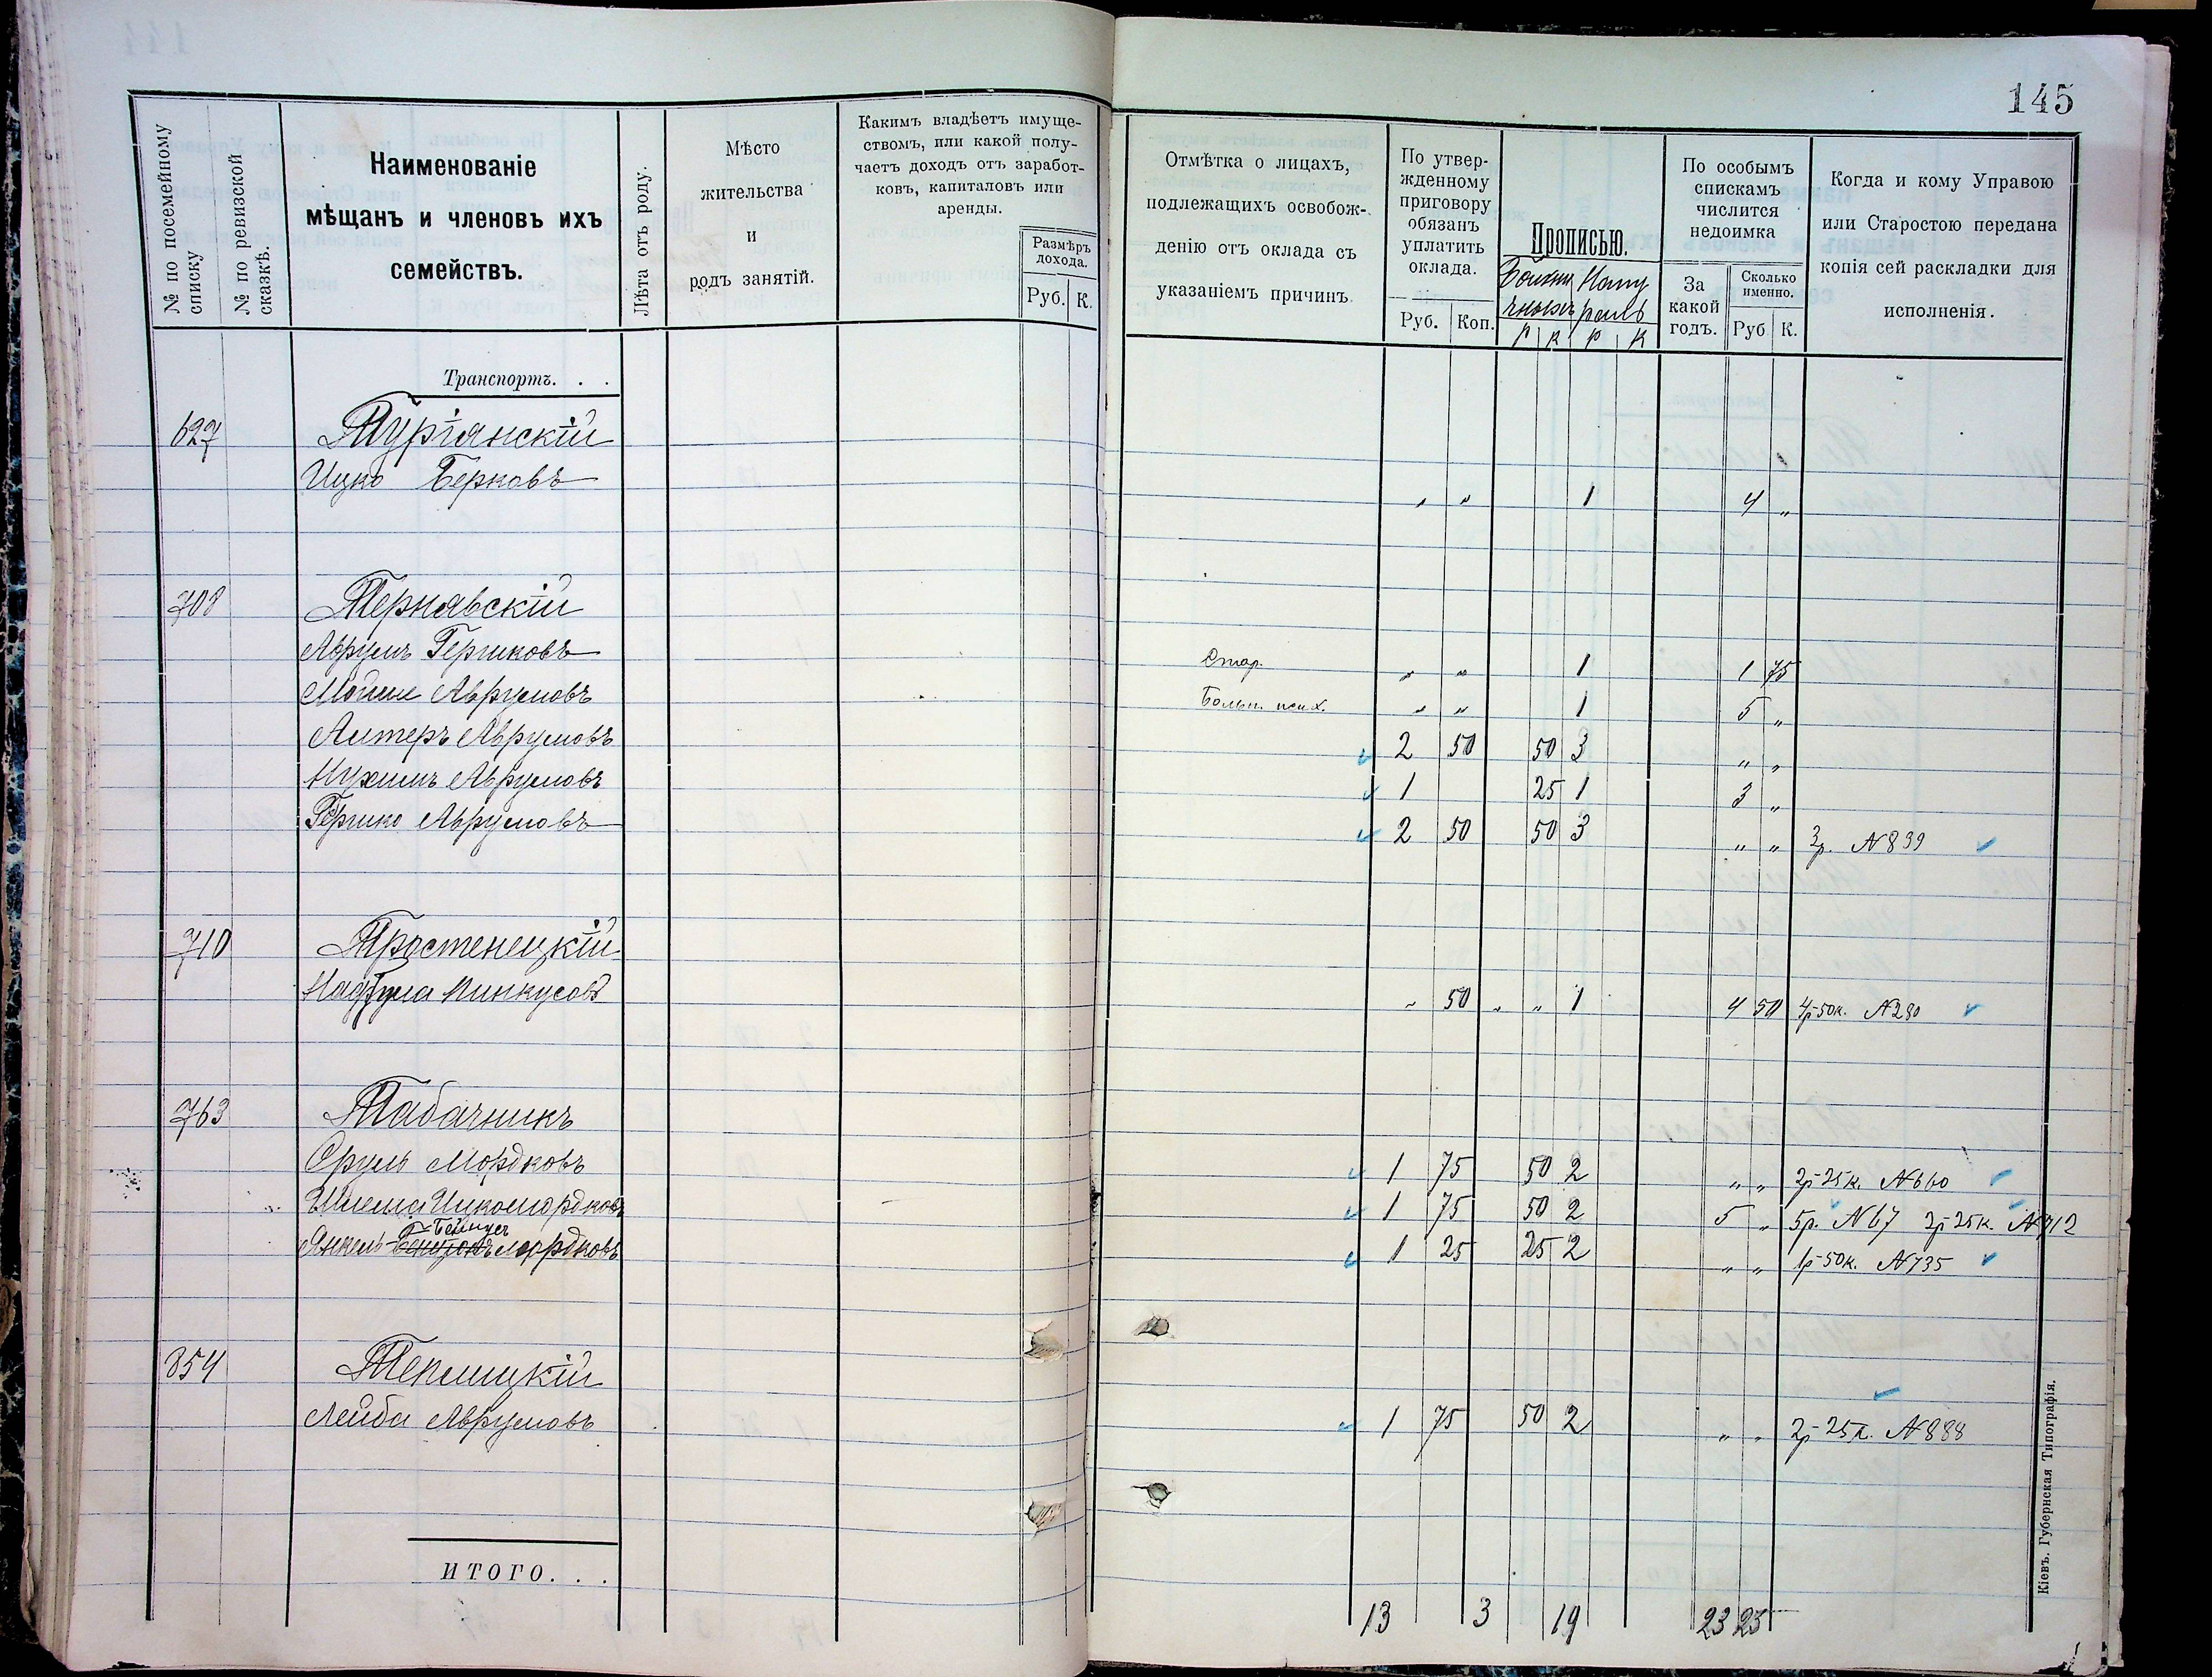 145
№ по посемейному списку
№ по ревизской сказкѣ.
Наименованіе
мѣщанъ и членовъ ихъ
семействъ.
Лѣта отъ роду.
Мѣсто
жительства
и
родъ занятій.
Какимъ владѣетъ имуще-
ствомъ, или какой полу-
чаетъ доходъ отъ заработ-
ковъ, капиталовъ или
аренды.
Размѣръ
дохода.
Руб. К.
Отмѣтка о лицахъ,
подлежащихъ освобож-
денію отъ оклада съ
указаніемъ причинъ.
По утвер-
жденному
приговору
обязанъ
уплатить
оклада.
Руб. Коп.
Прописью.
Р К Р К
По особымъ
спискамъ
числится
недоимка
За
какой
годъ.
Сколько
именно.
Руб К.
Когда и кому Управою
или Старостою передана
копія сей раскладки для
исполненія.
Транспортъ. . .
627 Тургянскій
Ицко Берковъ " " 1 4 "
708 Тернавскій
Аврумъ Гершковъ Стар. " " 1 1 75
Мошко Аврумовъ Больн. псих. " " 1 5 "
Алтеръ Аврумовъ 2 50 50 3 " "
Нухимъ Аврумовъ 1 25 1 3 "
Гершко Аврумовъ 2 50 50 3 " " 3р. №839
710 Тростенецкій
Пинкусовъ " 50 " " 1 4 50 4р-50к. №280
763 Табачникъ
Сруль Мордковъ 1 75 50 2 " " 2р-25к. №660
Шлема Ицкомордковъ 1 75 50 2 5 " 5р. №67 2р-25к. №712
Янкель Бенционъ Мордковъ 1 25 25 2 " " 1р-50к. №735
854 Теплицкій
Лейба Аврумовъ 1 75 50 2 " " 2р-25к. №888
ИТОГО. . .
13 3 19 23 25
Кіевъ. Губернская Типографія.